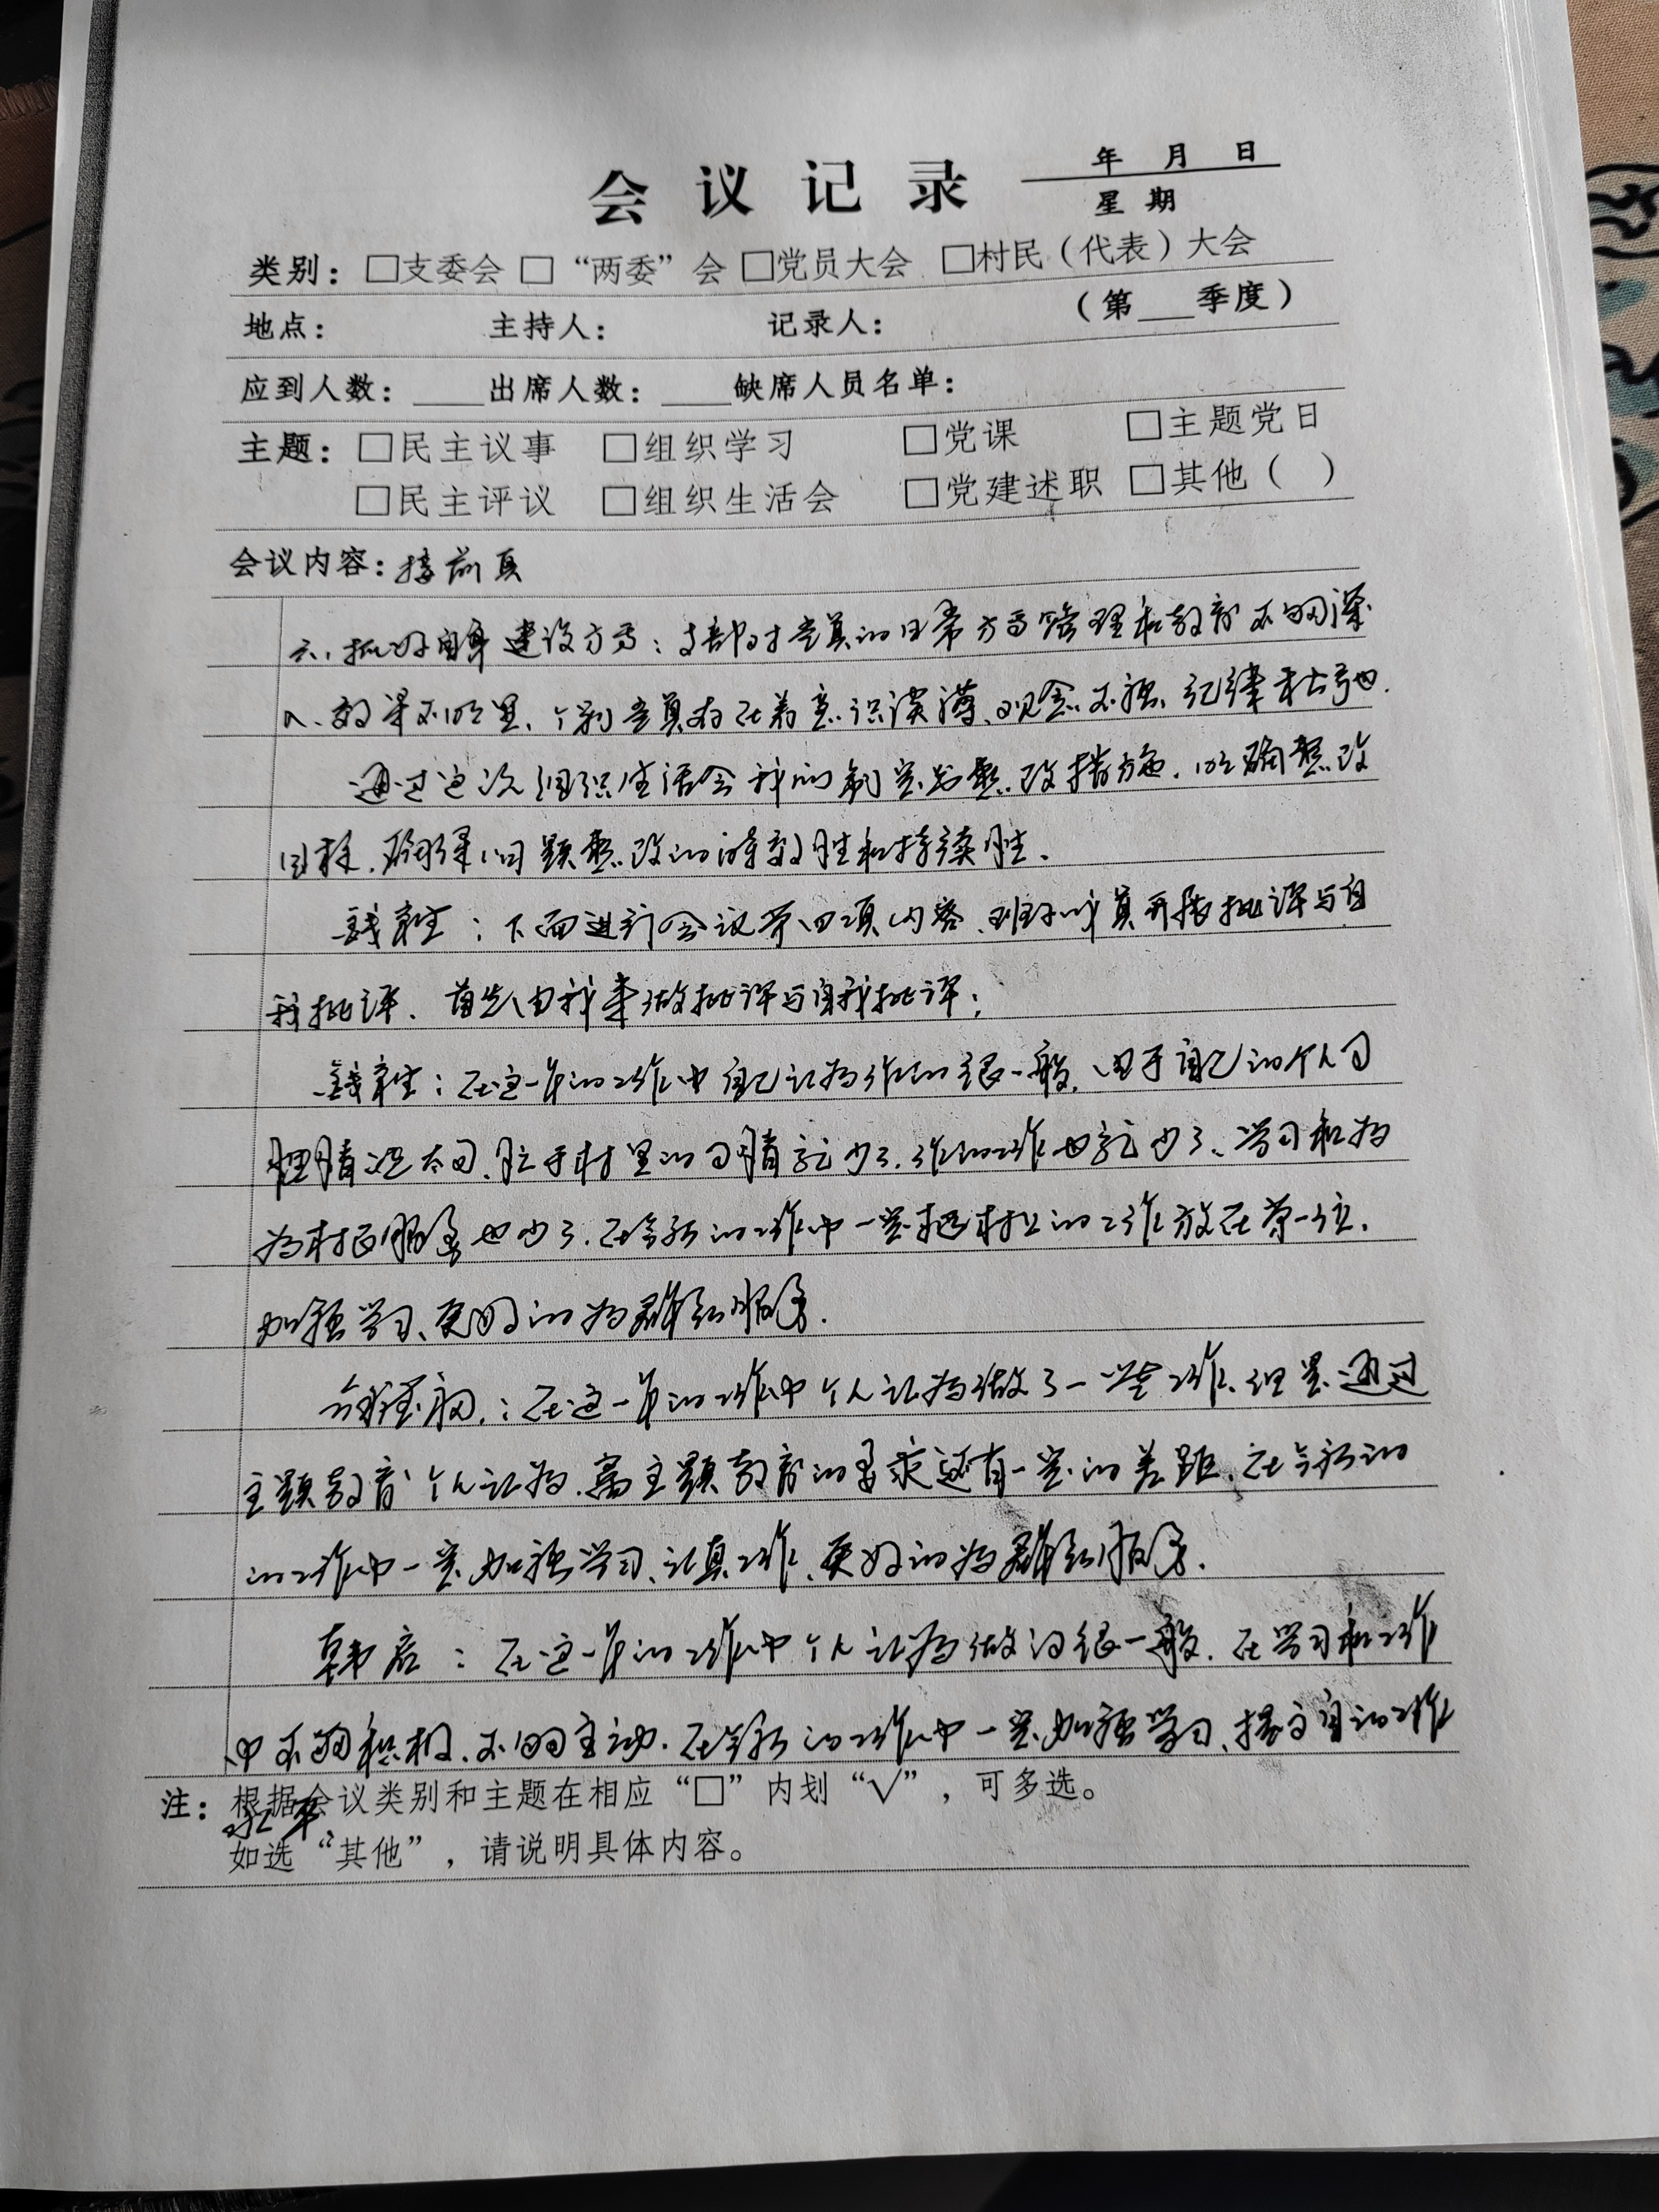 会议记录 年 月 日
星期
类别：□支委会 □“两委”会 □党员大会 □村民（代表）大会
地点： 主持人： 记录人： （第___季度）
应到人数：____出席人数：____缺席人员名单：
主题：□民主议事 □组织学习 □党课 □主题党日
□民主评议 □组织生活会 □党建述职 □其他（ ）
会议内容：接前页
六、抓好自身建设方面：支部对党员的日常方面管理和教育不够深
入、效果不明显、个别党员存在着意识淡薄、观念不强、纪律松弛.
通过这次组织生活会我们制定出整改措施.明确整改
目标.确保问题整改的时效性和持续性.
：下面进行会议第四项内容、班子成员开展批评与自
我批评、首先由我来做批评与自我批评：
：在这一年的工作中自己认为作的很一般.由于自己的个人
在今后的工作中一定把村上的工作放在第一位.
加强学习、更好的为群众服务.
：在这一年的工作中个人认为做了一些工作、但是通过
主题教育个人认为.离主题教育的要求还有一定的差距.在今后的
的工作中一定加强学习、认真工作、更好的为群众服务.
韩启：在这一年的工作中个人认为做的很一般.在学习和工作
中不够积极.不够主动.在今后的工作中一定加强学习、提高自己的工作
水平.
注：根据会议类别和主题在相应“□”内划“√”，可多选。
如选“其他”，请说明具体内容。